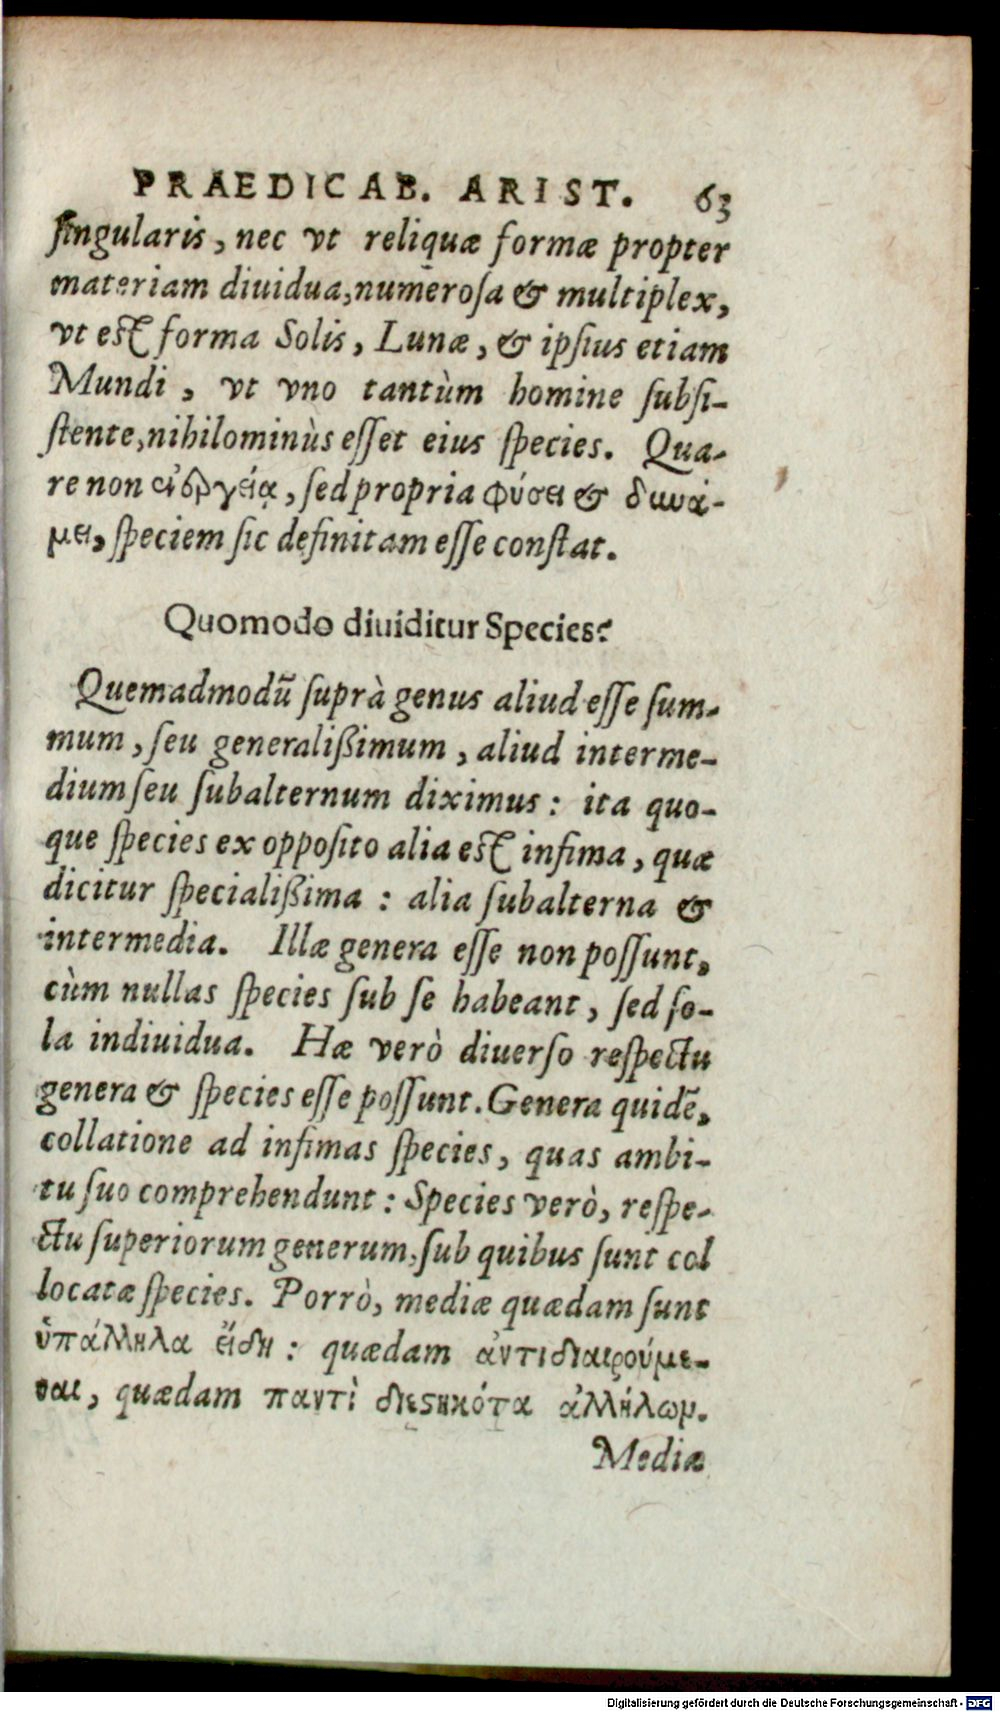 PRAEDICAB. ARIST. 63
ſingularis, nec vt reliquæ formæ propter
materiam diuidua, numeroſa & multiplex,
vt eſt forma Solis, Lunæ, & ipſius etiam
Mundi, vt vno tantùm homine ſubſi-
ſtente, nihilominùs eſſet eius ſpecies. Qua-
re non ἐνεργείᾳ, ſed propria φύσει & δυνά-
μει, ſpeciem ſic definitam eſſe conſtat.
Quomodo diuiditur Species?
Quemadmodū ſuprà genus aliud eſſe ſum-
mum, ſeu generaliſſimum, aliud interme-
dium ſeu ſubalternum diximus: ita quo-
que ſpecies ex oppoſito alia eſt infima, quæ
dicitur ſpecialiſſima: alia ſubalterna &
intermedia. Illæ genera eſſe non poſſunt,
cùm nullas ſpecies ſub ſe habeant, ſed ſo-
la indiuidua. Hæ verò diuerſo reſpectu
genera & ſpecies eſſe poſſunt. Genera quidē,
collatione ad infimas ſpecies, quas ambi-
tu ſuo comprehendunt: Species verò, reſpe-
ctu ſuperiorum generum, ſub quibus ſunt col
locatæ ſpecies. Porrò, mediæ quædam ſunt
ὑπάλληλα εἴδη: quædam ἀντιδιαιρούμε-
ναι, quædam παντὶ διεστηκότα ἀλλήλωμ.
Mediæ
Digitalisierung gefördert durch die Deutsche Forschungsgemeinschaft - DFG